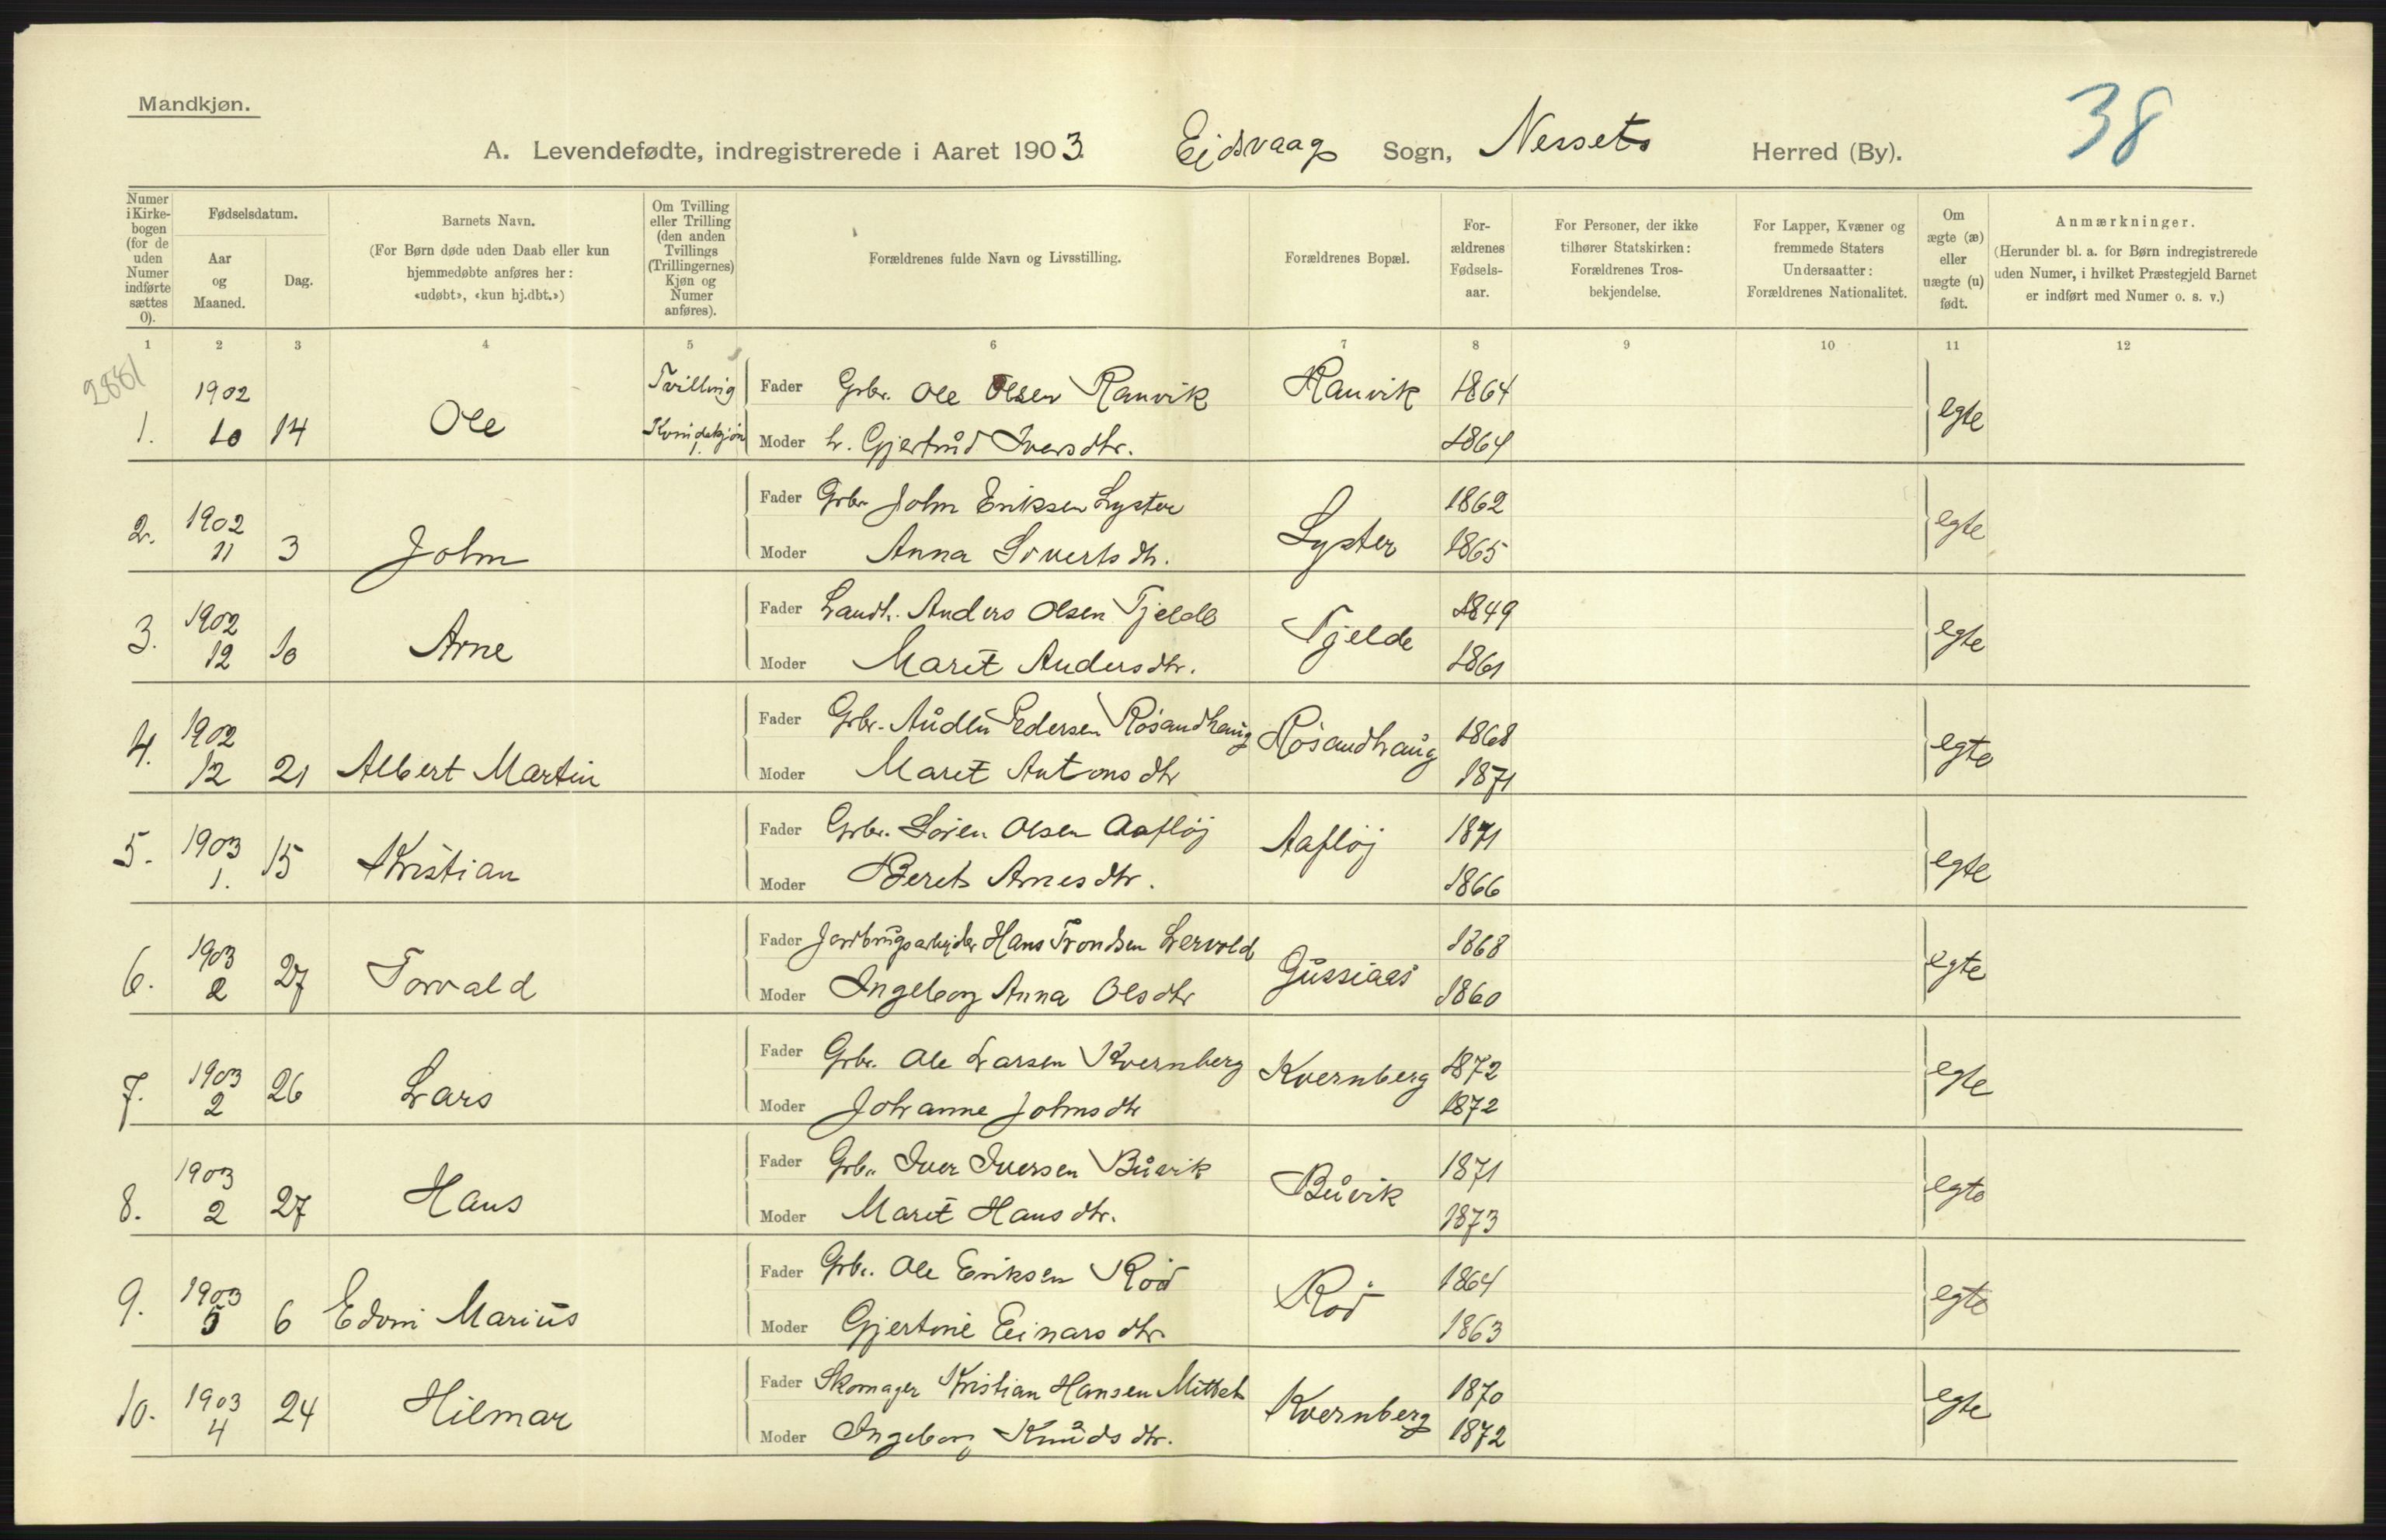 Mandkjøn.
38
A. Levendefødte, indregistrerede i Aaret 1903. Eidsvaag Sogn, Nesset Herred (By).
Numer i Kirkebogen (for de uden Numer indførte sættes 0).
Fødselsdatum.
Aar og Maaned.
Dag.
Barnets Navn.
(For Børn døde uden Daab eller kun hjemmedøbte anføres her: «udøbt», «kun hj.dbt.»)
Om Tvilling eller Trilling (den anden Tvillings (Trillingernes) Kjøn og Numer anføres).
Forældrenes fulde Navn og Livsstilling.
Forældrenes Bopæl.
Forældrenes Fødselsaar.
For Personer, der ikke tilhører Statskirken: Forældrenes Trosbekjendelse.
For Lapper, Kvæner og fremmede Staters Undersaatter: Forældrenes Nationalitet.
Om ægte (æ) eller uægte (u) født.
Anmærkninger.
(Herunder bl. a. for Børn indregistrerede uden Numer, i hvilket Præstegjeld Barnet er indført med Numer o. s. v.)
1 2 3 4 5 6 7 8 9 10 11 12
2881
1. 1902 10 14 Ole Tvilling Kvindekjøn 1. Fader Grbr. Ole Olsen Ranvik Ranvik 1864 egte
Moder h. Gjertrud Iversdtr. 1864
2. 1902 11 3 John Fader Grbr. John Eriksen Lyster Lyster 1862 egte
Moder Anna Sivertsdtr. 1865
3. 1902 12 10 Arne Fader Landh. Anders Olsen Tjelde Tjelde 1849 egte
Moder Marit Andersdtr. 1861
4. 1902 12 21 Albert Martin Fader Grbr. Audun Pedersen Røsandhaug Røsandhaug 1868 egte
Moder Marit Antonsdtr 1871
5. 1903 1. 15 Kristian Fader Grbr. Søren Olsen Aafløj Aafløj 1871 egte
Moder Beret Arnesdtr. 1866
6. 1903 2 27 Torvald Fader Jordbrugsarbejder Hans Trondsen Lervold Gussiaas 1868 egte
Moder Ingeborg Anna Olsdtr 1860
7. 1903 2 26 Lars Fader Grbr. Ole Larsen Kvernberg Kvernberg 1872 egte
Moder Johanne Johnsdtr 1872
8. 1903 2 27 Hans Fader Grbr. Iver Iversen Buvik Buvik 1871 egte
Moder Marit Hansdtr. 1873
9. 1903 5 6 Edvin Marius Fader Grbr. Ole Eriksen Rød Rød 1864 egte
Moder Gjertine Einarsdtr 1863
10. 1903 4 24 Hilmar Fader Skomager Kristian Hansen Mittet Kvernberg 1870 egte
Moder Ingeborg Knudsdtr. 1872